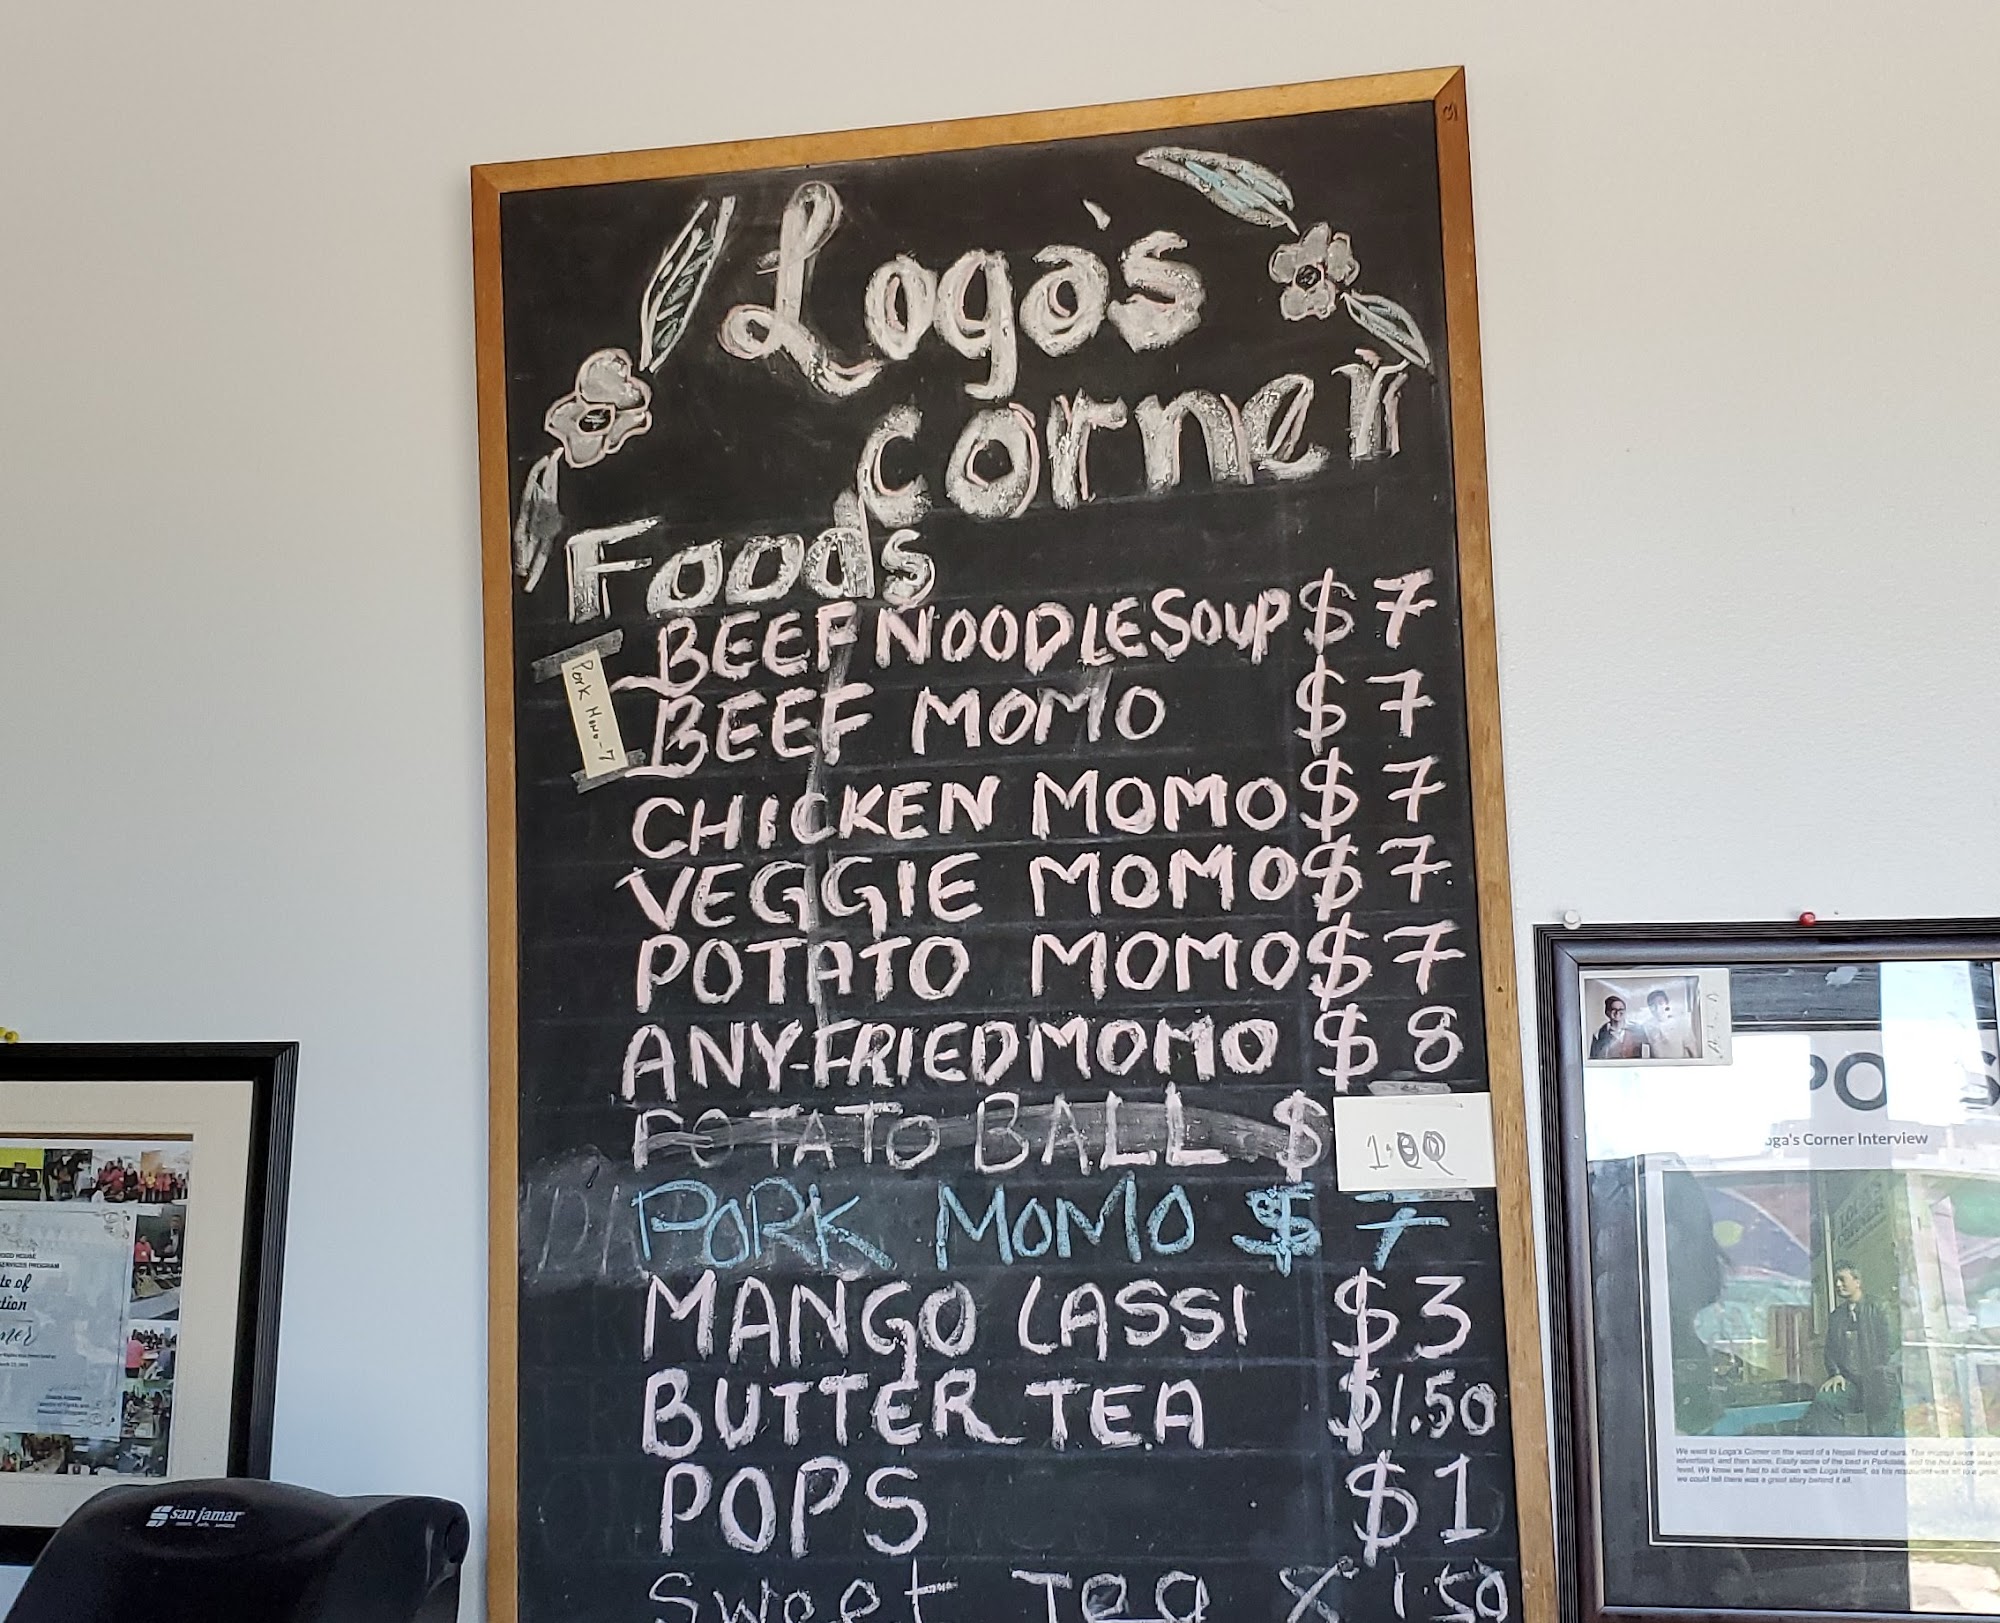 Loga's
corner
Foods
BEEF NOODLE SOUP $ 7
Pork Momo - 7
BEEF MOMO $ 7
CHICKEN MOMO $ 7
VEGGIE MOMO $ 7
POTATO MOMO $ 7
ANY-FRIED MOMO $ 8
POTATO BALL $ 1.00
PORK MOMO $ 7
MANGO LASSI $3
BUTTER TEA $1.50
POPS $1
Sweet Tea 1.50
san jamar
OOD HOUSE
SERVICES PROGRAM
te of
tion
ner
PO S
oga's Corner Interview
We went to Loga's Corner on the word of a Nepali friend of ours. The
advertised, and then some. Easily some of the best in Parkdale, and the hot sauce was
level. We knew we had to sit down with Loga himself, as his
we could tell there was a great story behind it all.